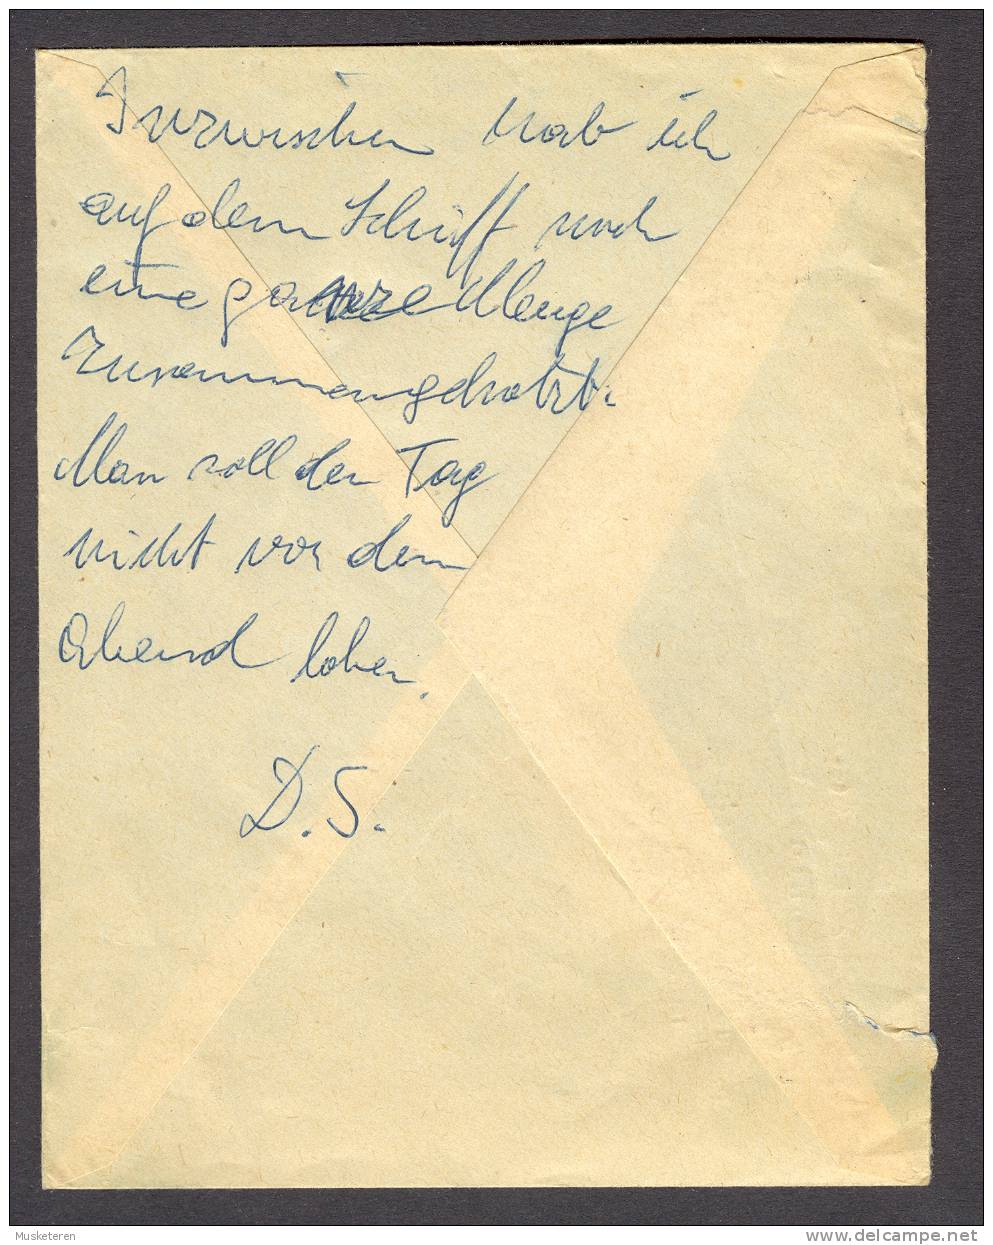 Inzwischen hab ich
auf dem Schiff noch
eine ganze Menge
zusammengekotzt.
Man soll den Tag
nicht vor dem
Abend loben.
D.S.
Musketeren
delcampe.net